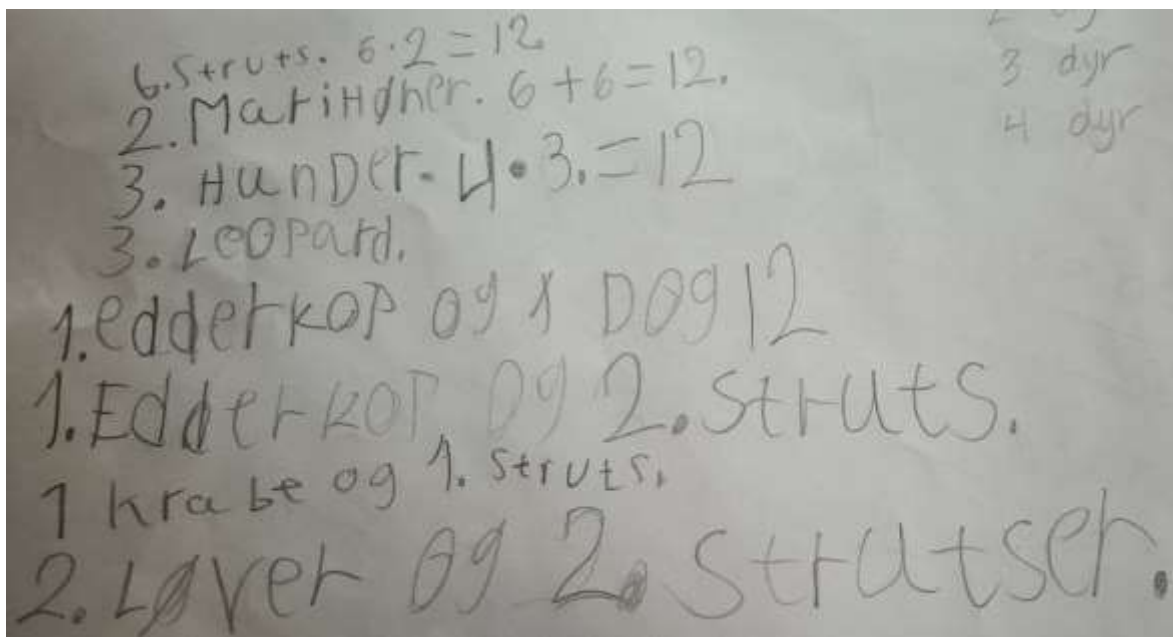 6. Struts. 6·2=12
2. MariHØner. 6+6=12.
3. HunDer. 4·3.=12
3. LeOPard.
1. edderkop og 1 Dog 12
1. EdderKOP og 2. Struts.
1 krabe og 1. struts.
2. Løver og 2. Strutser.
3 dyr
4 dyr